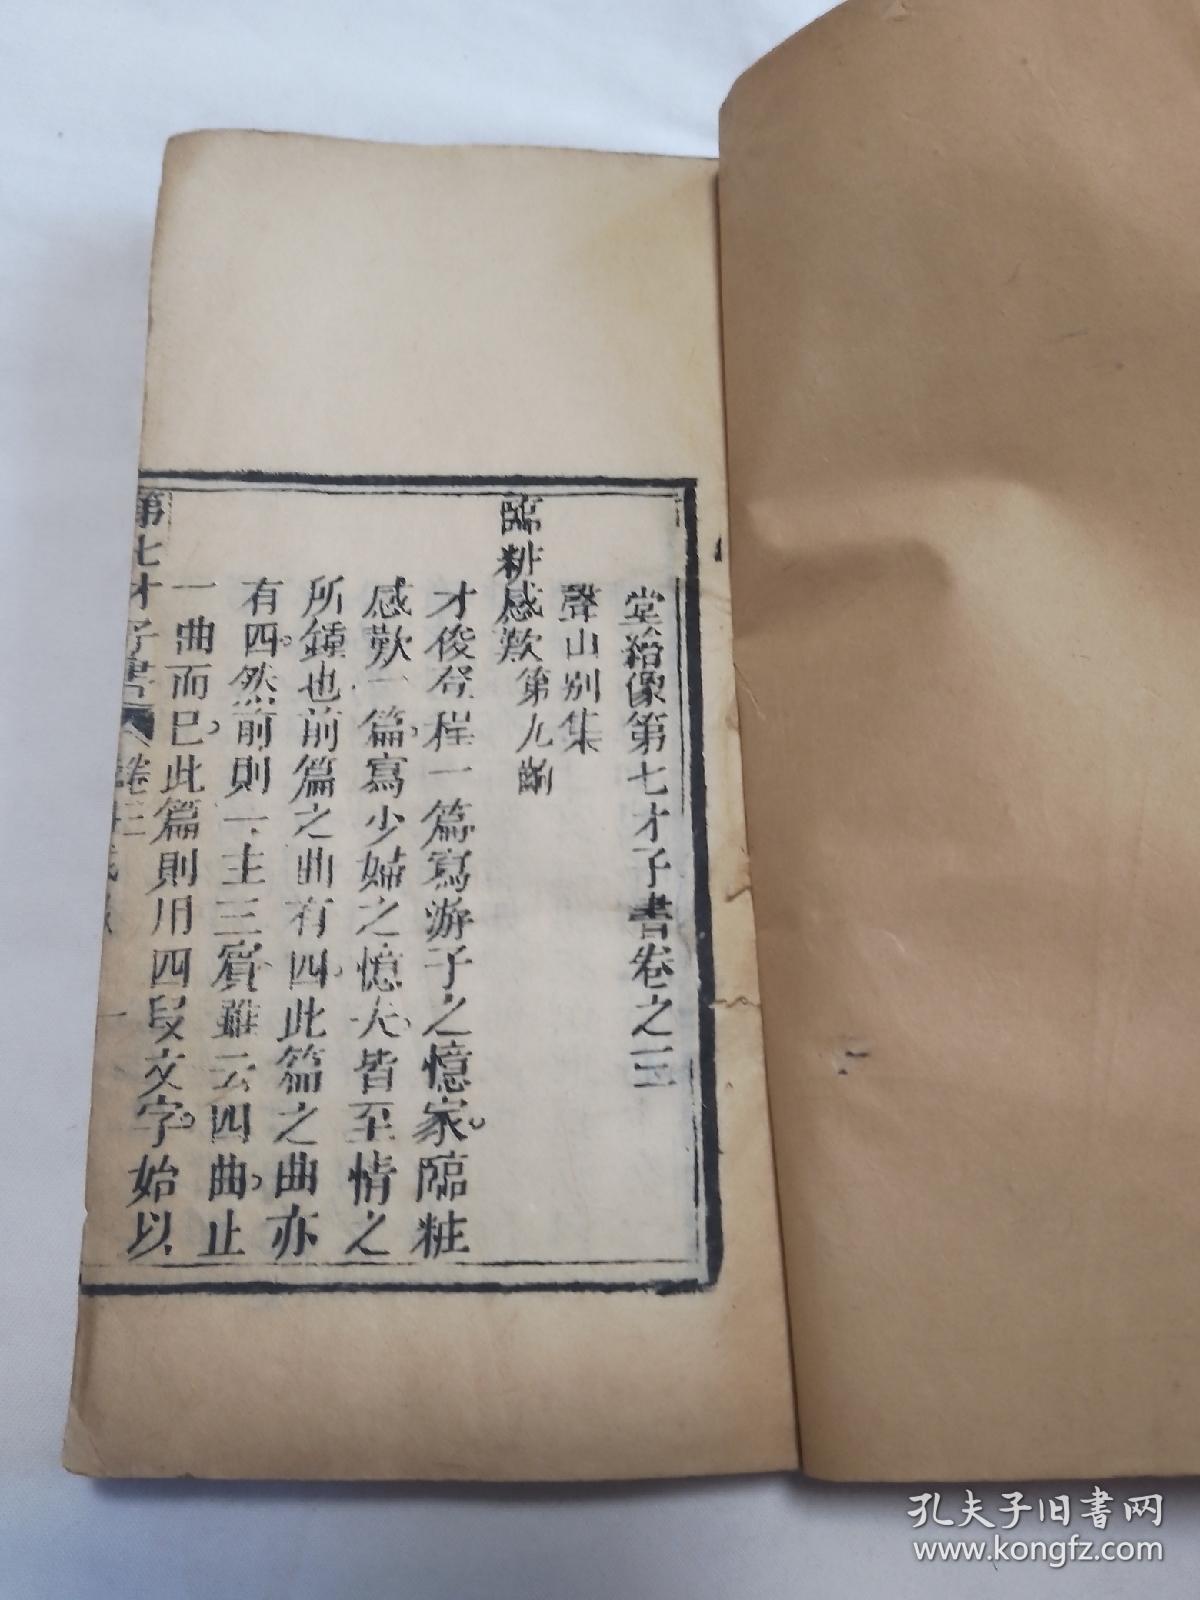 堂繪像第七才子書卷之三
聲山別集
臨粧感歎第九齣
才俊登程一篇寫游子之憶家臨粧
感歎一篇寫少婦之憶夫皆至情之
所鍾也前篇之曲有四此篇之曲亦
有四然前則一主三賓雖云四曲止
一曲而已此篇則用四段文字始以
第七才子書 卷三
孔夫子旧书网
www.kongfz.com